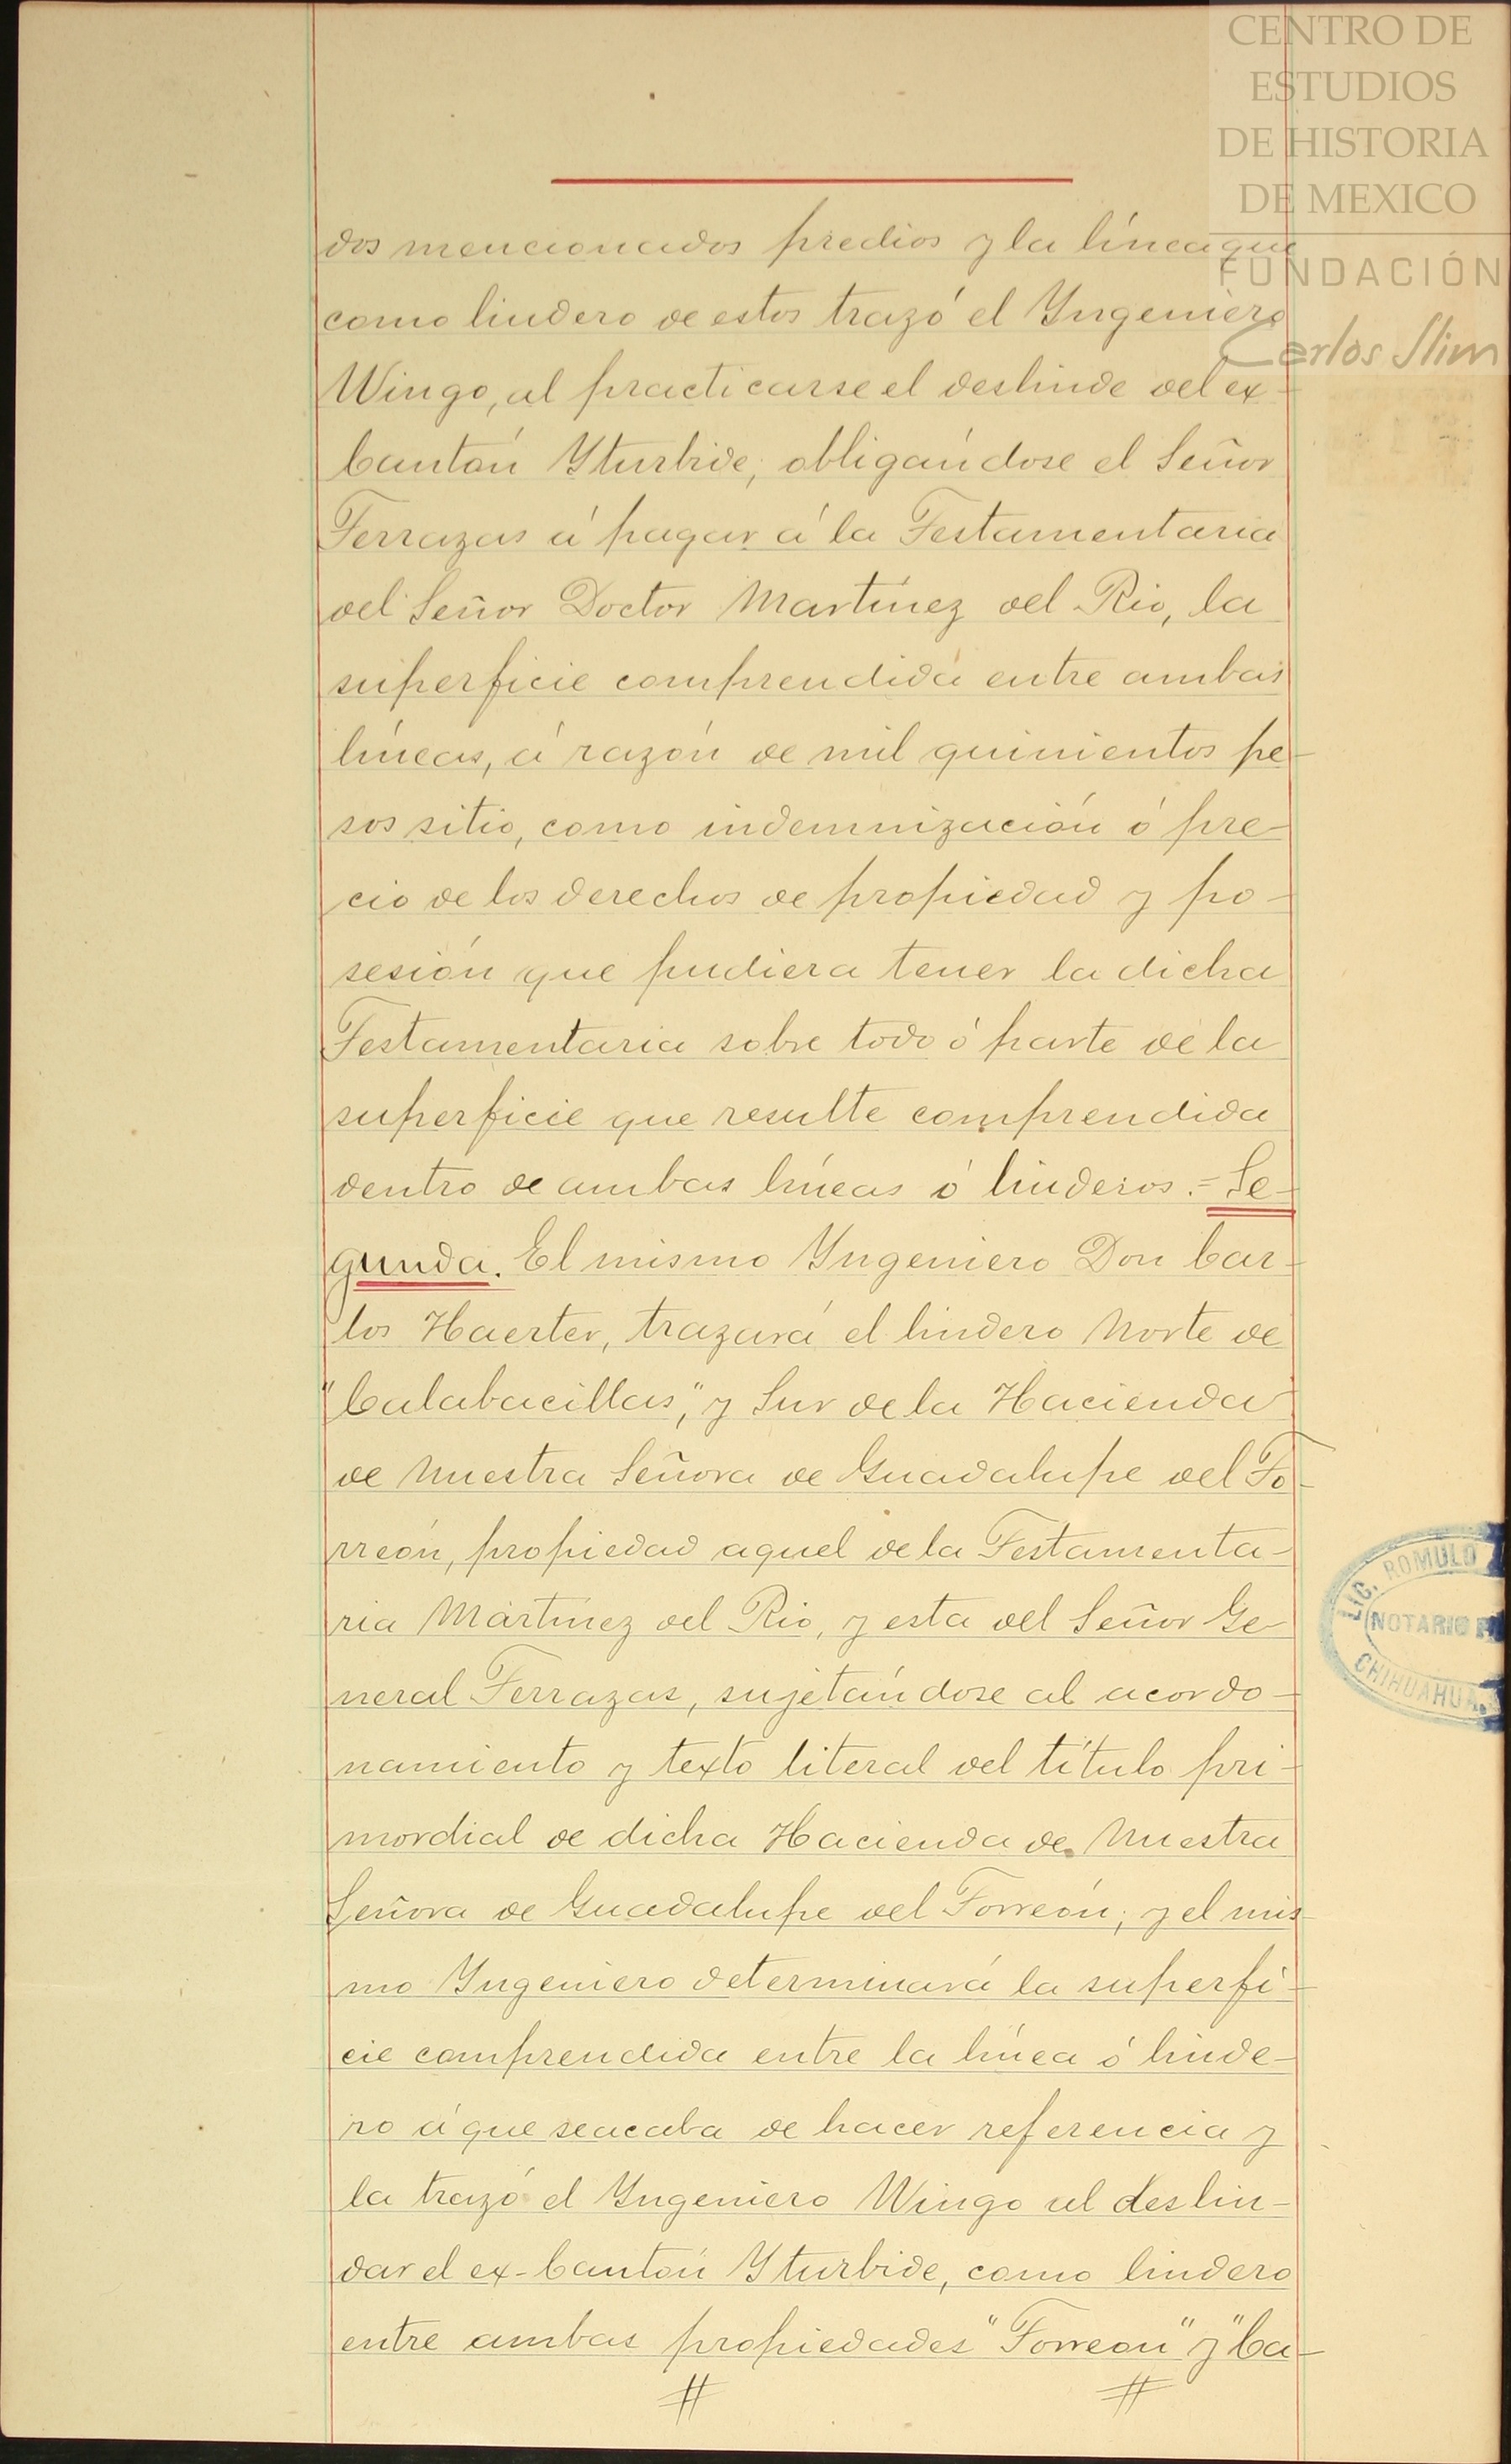 CENTRO DE
ESTUDIOS
DE HISTORIA
DE MEXICO
FUNDACIÓN
Carlos Slim
dos mencionados predios y la línea que
como lindero de estos trazó el Yngeniero
Wingo, al practicarse el deslinde del ex-
Cantón Yturbide; obligándose el Señor
Terrazas á pagar á la Testamentaria
del Señor Doctor Martínez del Rio, la
superficie comprendida entre ambas
líneas, á razón de mil quinientos pe-
sos sitio, como indemnización ó pre-
cio de los derechos de propiedad y po-
sesión que pudiera tener la dicha
Testamentaria sobre todo ó parte de la
superficie que resulte comprendida
dentro de ambas líneas ó linderos.= Se-
gunda. El mismo Yngeniero Don Car-
los Haerter, trazará el lindero Norte de
"Calabacillas," y Sur de la Hacienda
de Nuestra Señora de Guadalupe del To-
rreón, propiedad aquel de la Testamenta-
ria Martínez del Rio, y esta del Señor Ge-
neral Terrazas, sujetándose al acordo-
namiento y texto literal del título pri-
mordial de dicha Hacienda de Nuestra
Señora de Guadalupe del Torreón; y el mis
mo Yngeniero determinará la superfi-
cie comprendida entre la línea ó linde-
ro á que se acaba de hacer referencia y
la trazó el Yngeniero Wingo al deslin-
dar el ex-Cantón Yturbide, como lindero
entre ambas propiedades "Torreon" y "Ca-
LIC. ROMULO
NOTARIO P
CHIHUAHUA.